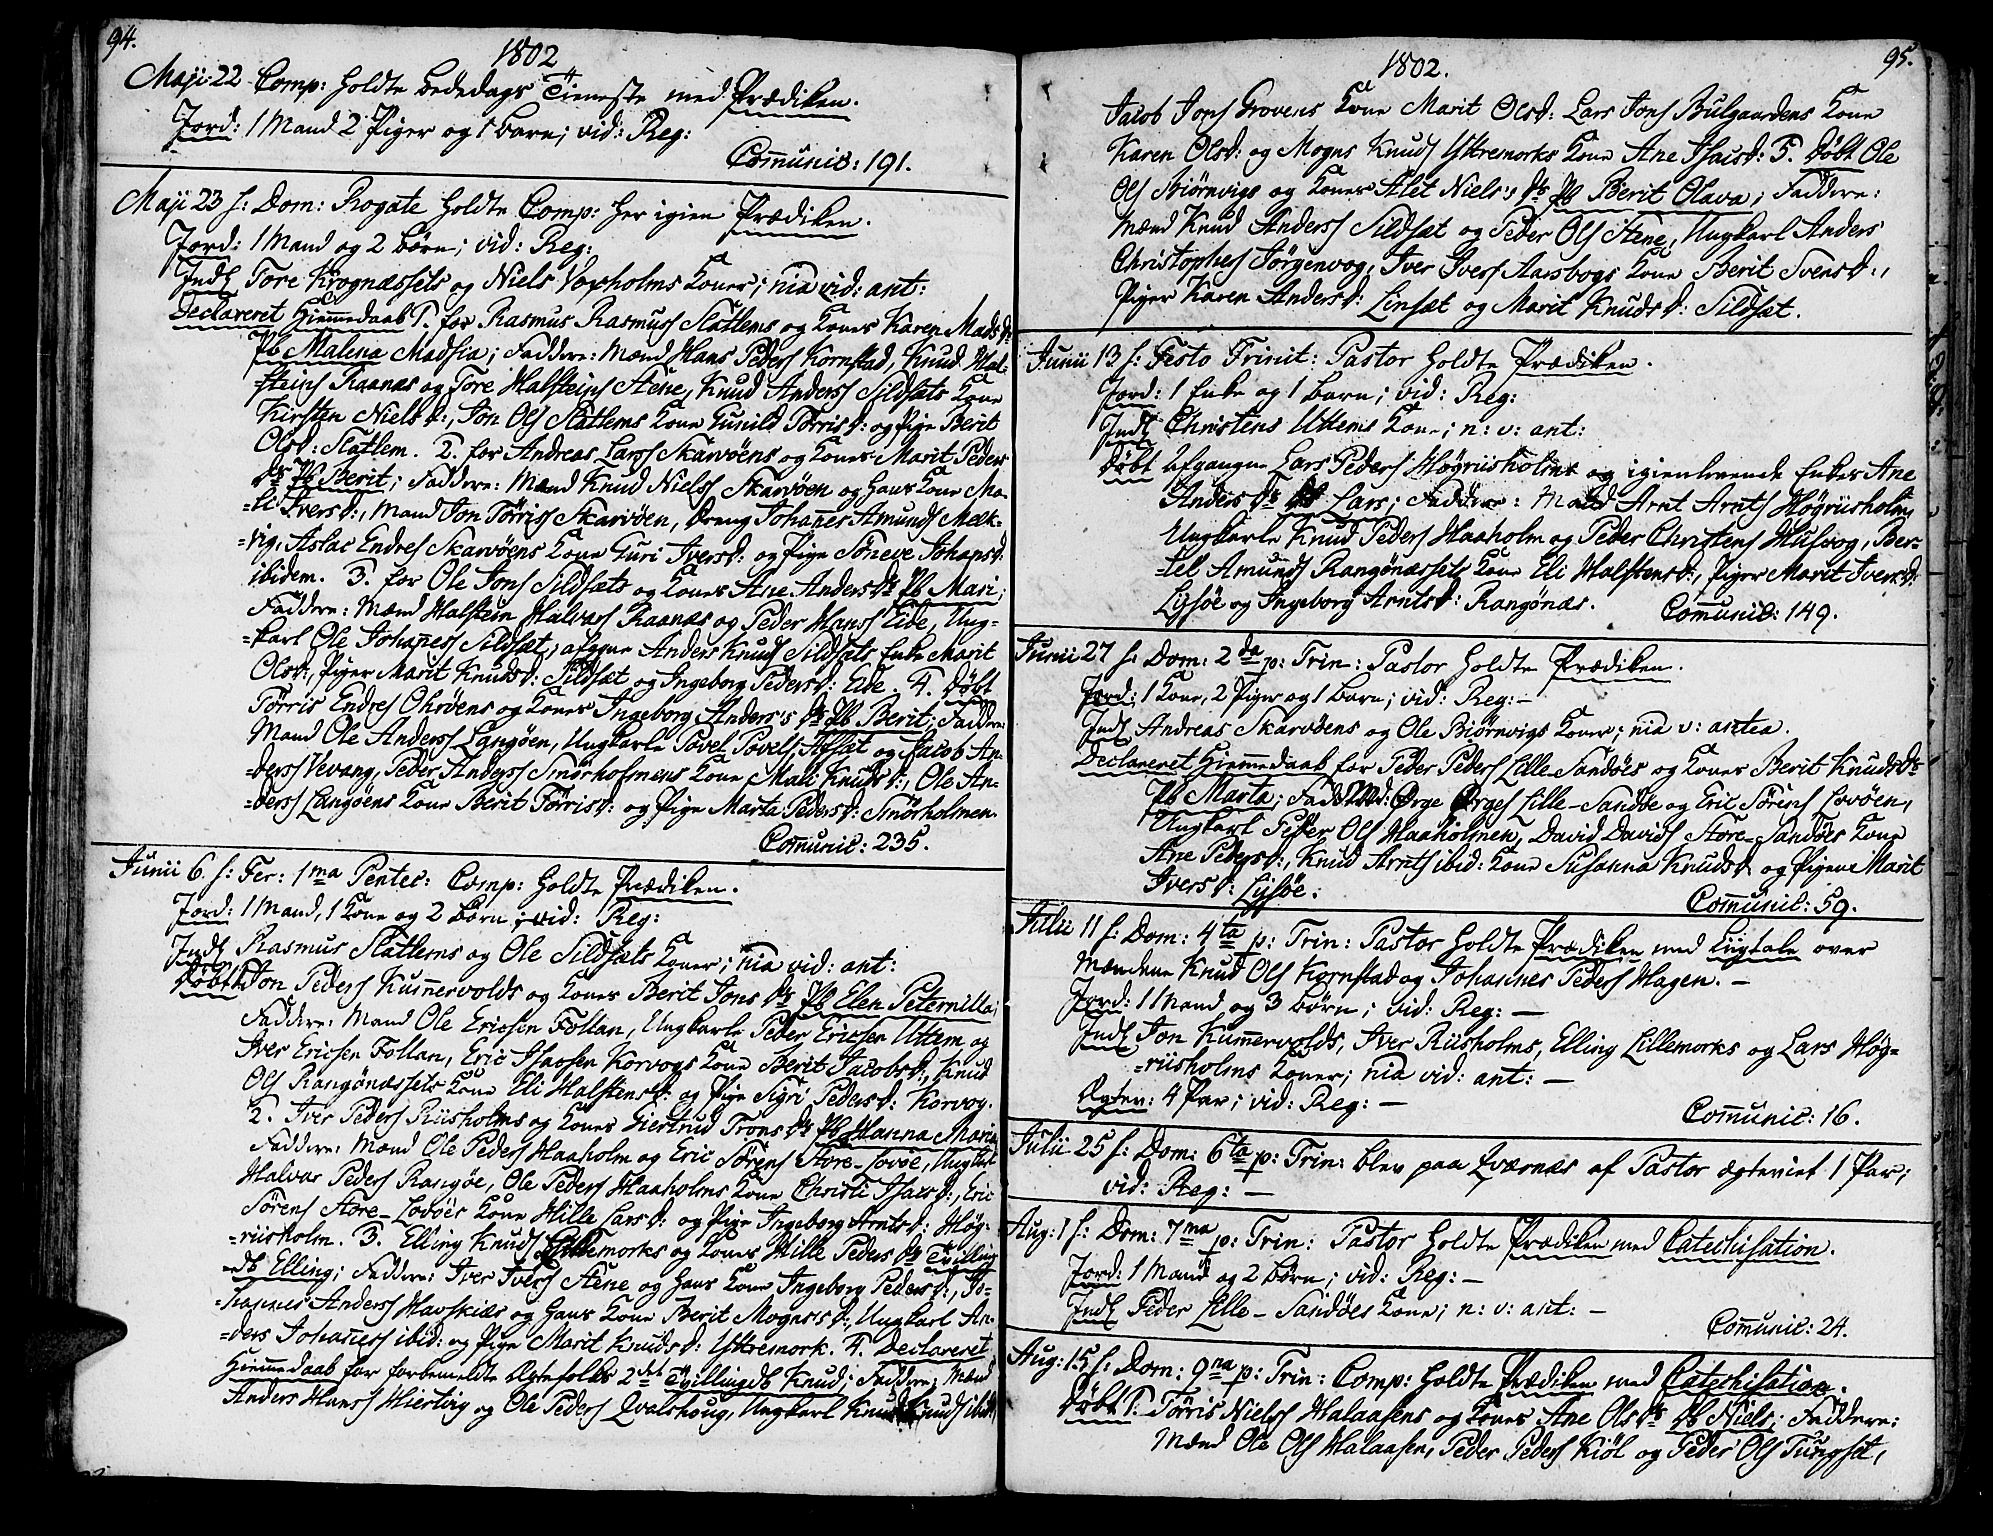 94.
1802
Maji 22 Comp: holdte bededags Tieneste med Prædiken.
Jord: 1 Mand 2 Piger og 1 barn; vid: Reg:
Communic: 191.
Maji 23 f: Dom: Rogate holdte Comp: her igien Prædiken.
Jord: 1 Mand og 2 børn; vid: Reg:
Indl Tore Krognæssets og Niels Voxholms Koner; nia vid: ant:
Declareret Hiemmedaab 1. for Rasmus Rasmuss Slatlems og Kones Karen Mads Dr
Pb Malena Madsia; Faddere: Mænd Hans Peders Kornstad, Knud Hal-
=steins Raanæs og Tore Halsteins Stene, Knud Anderss Sildsæts Kone
Kirsten Nielsd:, Jon Ols Slatlems Kone Gunild Törrisd: og Pige Berit
Olsd: Slatlem. 2. for Andreas Larss Skarvöens og Kones Marit Peders
Dr Pb Berit; Faddere: Mænd Knud Nielss Skarvöen og hans Kone Ma-
=li Iversd:, Mand Jon Törriss Skarvöen, dreng Johañes Amunds Melk-
=vig, Aslac Endres Skarvöens Kone Guri Iversd: og Pige Söneve Johansd:
ibidem. 3. for Ole Jons Sildsæts og Kones Ane Anders Dr Pb Mari;
Faddere: Mænd Halstein Halvors Raanæs og Peder Hanss Eide, Ung-
=karl Ole Johañes Sildsæt, afgne Anders Knuds Sildsæts Enke Marit
Olsd:, Piger Marit Knudsd: Sildsæt og Ingeborg Pedersd: Eide. 4. Döbt
Törris Endres Ohröens og Kones Ingeborg Anders's Dr Pb Berit; Faddere:
Mand Ole Anderss Langöen, Ungkarle Povel Povels Afsæt og Jacob An-
=derss Vevang, Peder Anderss Smörholmens Kone Mali Knudsd:, Ole An-
=derss Langöens Kone Berit Törrisd: og Pige Marta Pedersd: Smörholmen.
Communic: 235.
Junii 6. f: Fer: 1ma Pentec: Comp: holdte Prædiken.
Jord: 1 Mand, 1 Kone og 2 børn; vid: Reg:
Indl Rasmus Slatlems og Ole Sildsæts Koner; nia vid: ant:
Döbt 1. Jon Peders Kumervolds og Kones Berit Jons Dr Pb Elen Peternilla;
Faddere: Mand Ole Ericsen Follan, Ungkarle Peder Ericsen Uttem og
Iver Ericsen Follan, Eric Isacsen Korvogs Kone Berit Jacobsd:, Knud
Ols Rangönæssets Kone Eli Halstensd: og Pige Sigri Pedersd: Korvog.
2. Iver Peders Riisholms og Kones Giertrud Trons Dr Pb Hanna Maria
Faddere: Mænd Ole Peders Haaholm og Eric Sörens Store-Lovöe, Ungkarl
Halvor Peders Rangöe, Ole Peders Haaholms Kone Christi Isacsd:, Eric
Sörens Store-Lovöes Kone Hille Larsd: og Pige Ingeborg Arntsd: Hög-
=riisholm. 3. Elling Knuds Lillemorks og Kones Hille Peders Dr Tvilling
Db Elling; Faddere: Iver Ivers Stene og hans Kone Ingeborg Pedersd:, Jo-
=hannes Anderss Havskiæs og hans Kone Berit Mogns's D:, Ungkarl An-
=ders Johañess ibid: og Pige Marit Knudsd: Yttremork. 4. Declareret
Hiemmedaab for forbemeldte Ægtefolks 2det Tvillingdb Knud; Faddere: Mænd
Anders Hanss Hiertvig og Ole Peders Qvalshoug, Ungkarl Knud Knuds ibid:
95.
1802.
Jacob Jons Grovens Kone Marit Olsd: Lars Jons Bulgaardens Kone
Karen Olsd: og Mogns Knuds Yttremorks Kone Ane Isacsd: 5. Döbt Ole
Ols Biörnvigs og Kones Alet Niels's Dr Pb Berit Olava; Faddere:
Mænd Knud Anderss Sildsæt og Peder Ols Stene, Ungkarl Anders
Christophers Jörgenvog, Iver Ivers Aarsbogs Kone Berit Svensd:,
Piger Karen Andersd: Linsæt og Marit Knudsd: Sildsæt.
Junii 13 f: Festo Trinit: Pastor holdte Prædiken.
Jord: 1 Enke og 1 barn; vid: Reg:
Indl Christens Uttems Kone; n: v: ant:
Döbt afgangne Lars Peders Högriisholms og igienlevende Enkes Ane
Anders Dr Db Lars; Faddere: Mand Arnt Arnts Högriisholm,
Ungkarle Knud Peders Haaholm og Peder Christens Hulvog, Ber-
=tel Amunds Rangönæssets Kone Eli Halstensd:, Piger Marit Iversd:
Lysöe og Ingeborg Arntsd: Rangönæs.
Communic: 149.
Junii 27 f: Dom: 2da p: Trin: Pastor holdte Prædiken.
Jord: 1 Kone, 2 Piger og 1 barn; vid: Reg: -
Indl Andreas Skarvöens og Ole Biörnvigs Koner; nia v: antea.
Declareret Hiemmedaab for Peder Peders Lille-Sandöes og Kones Berit Knuds Dr
Pb Marta; Fadd: Mænd: Örge Örges Lille-Sandöe og Eric Sörens Lovöen,
Ungkarl Peder Ols Haaholmen, David Davids Store-Sandöes Kone
Ane Pedersd:, Knud Arnts ibid: Kone Susanna Knudsd: og Pigen Marit
Iversd: Lysöe.
Communic: 59.
Julii 11 f: Dom: 4ta p: Trin: Pastor holdte Prædiken med Ligtale over
Mændene Knud Ols Kornstad og Johannes Peders Hagen. -
Jord: 1 Mand og 3 børn; vid: Reg: -
Indl Jon Kumervolds, Iver Riisholms, Elling Lillemorks og Lars Hög-
=riisholms Koner; nia vid: ant: -
Ægtev: 4 Par; vid: Reg: -
Communic: 16.
Julii 25 f: Dom: 6ta p: Trin: blev paa Qværnæs af Pastor ægteviet 1 Par;
vid: Reg: -
Aug: 1 f: Dom: 7ma p: Trin: Pastor holdte Prædiken med Catechisation.
Jord: 1 Mand og 2 børn; vid: Reg: -
Indl Peder Lille-Sandöes Kone; n: v: ant: -
Communic: 24.
Aug: 15 f: Dom: 9na p: Trin: Comp: holdte Prædiken med Catechisation.
Döbt 1. Törris Nielss Halaasens og Kones Ane Ols Dr Db Niels; Faddere:
Mænd Ole Ols Halaasen, Peder Peders Kiöl og Peder Ols Tungset,